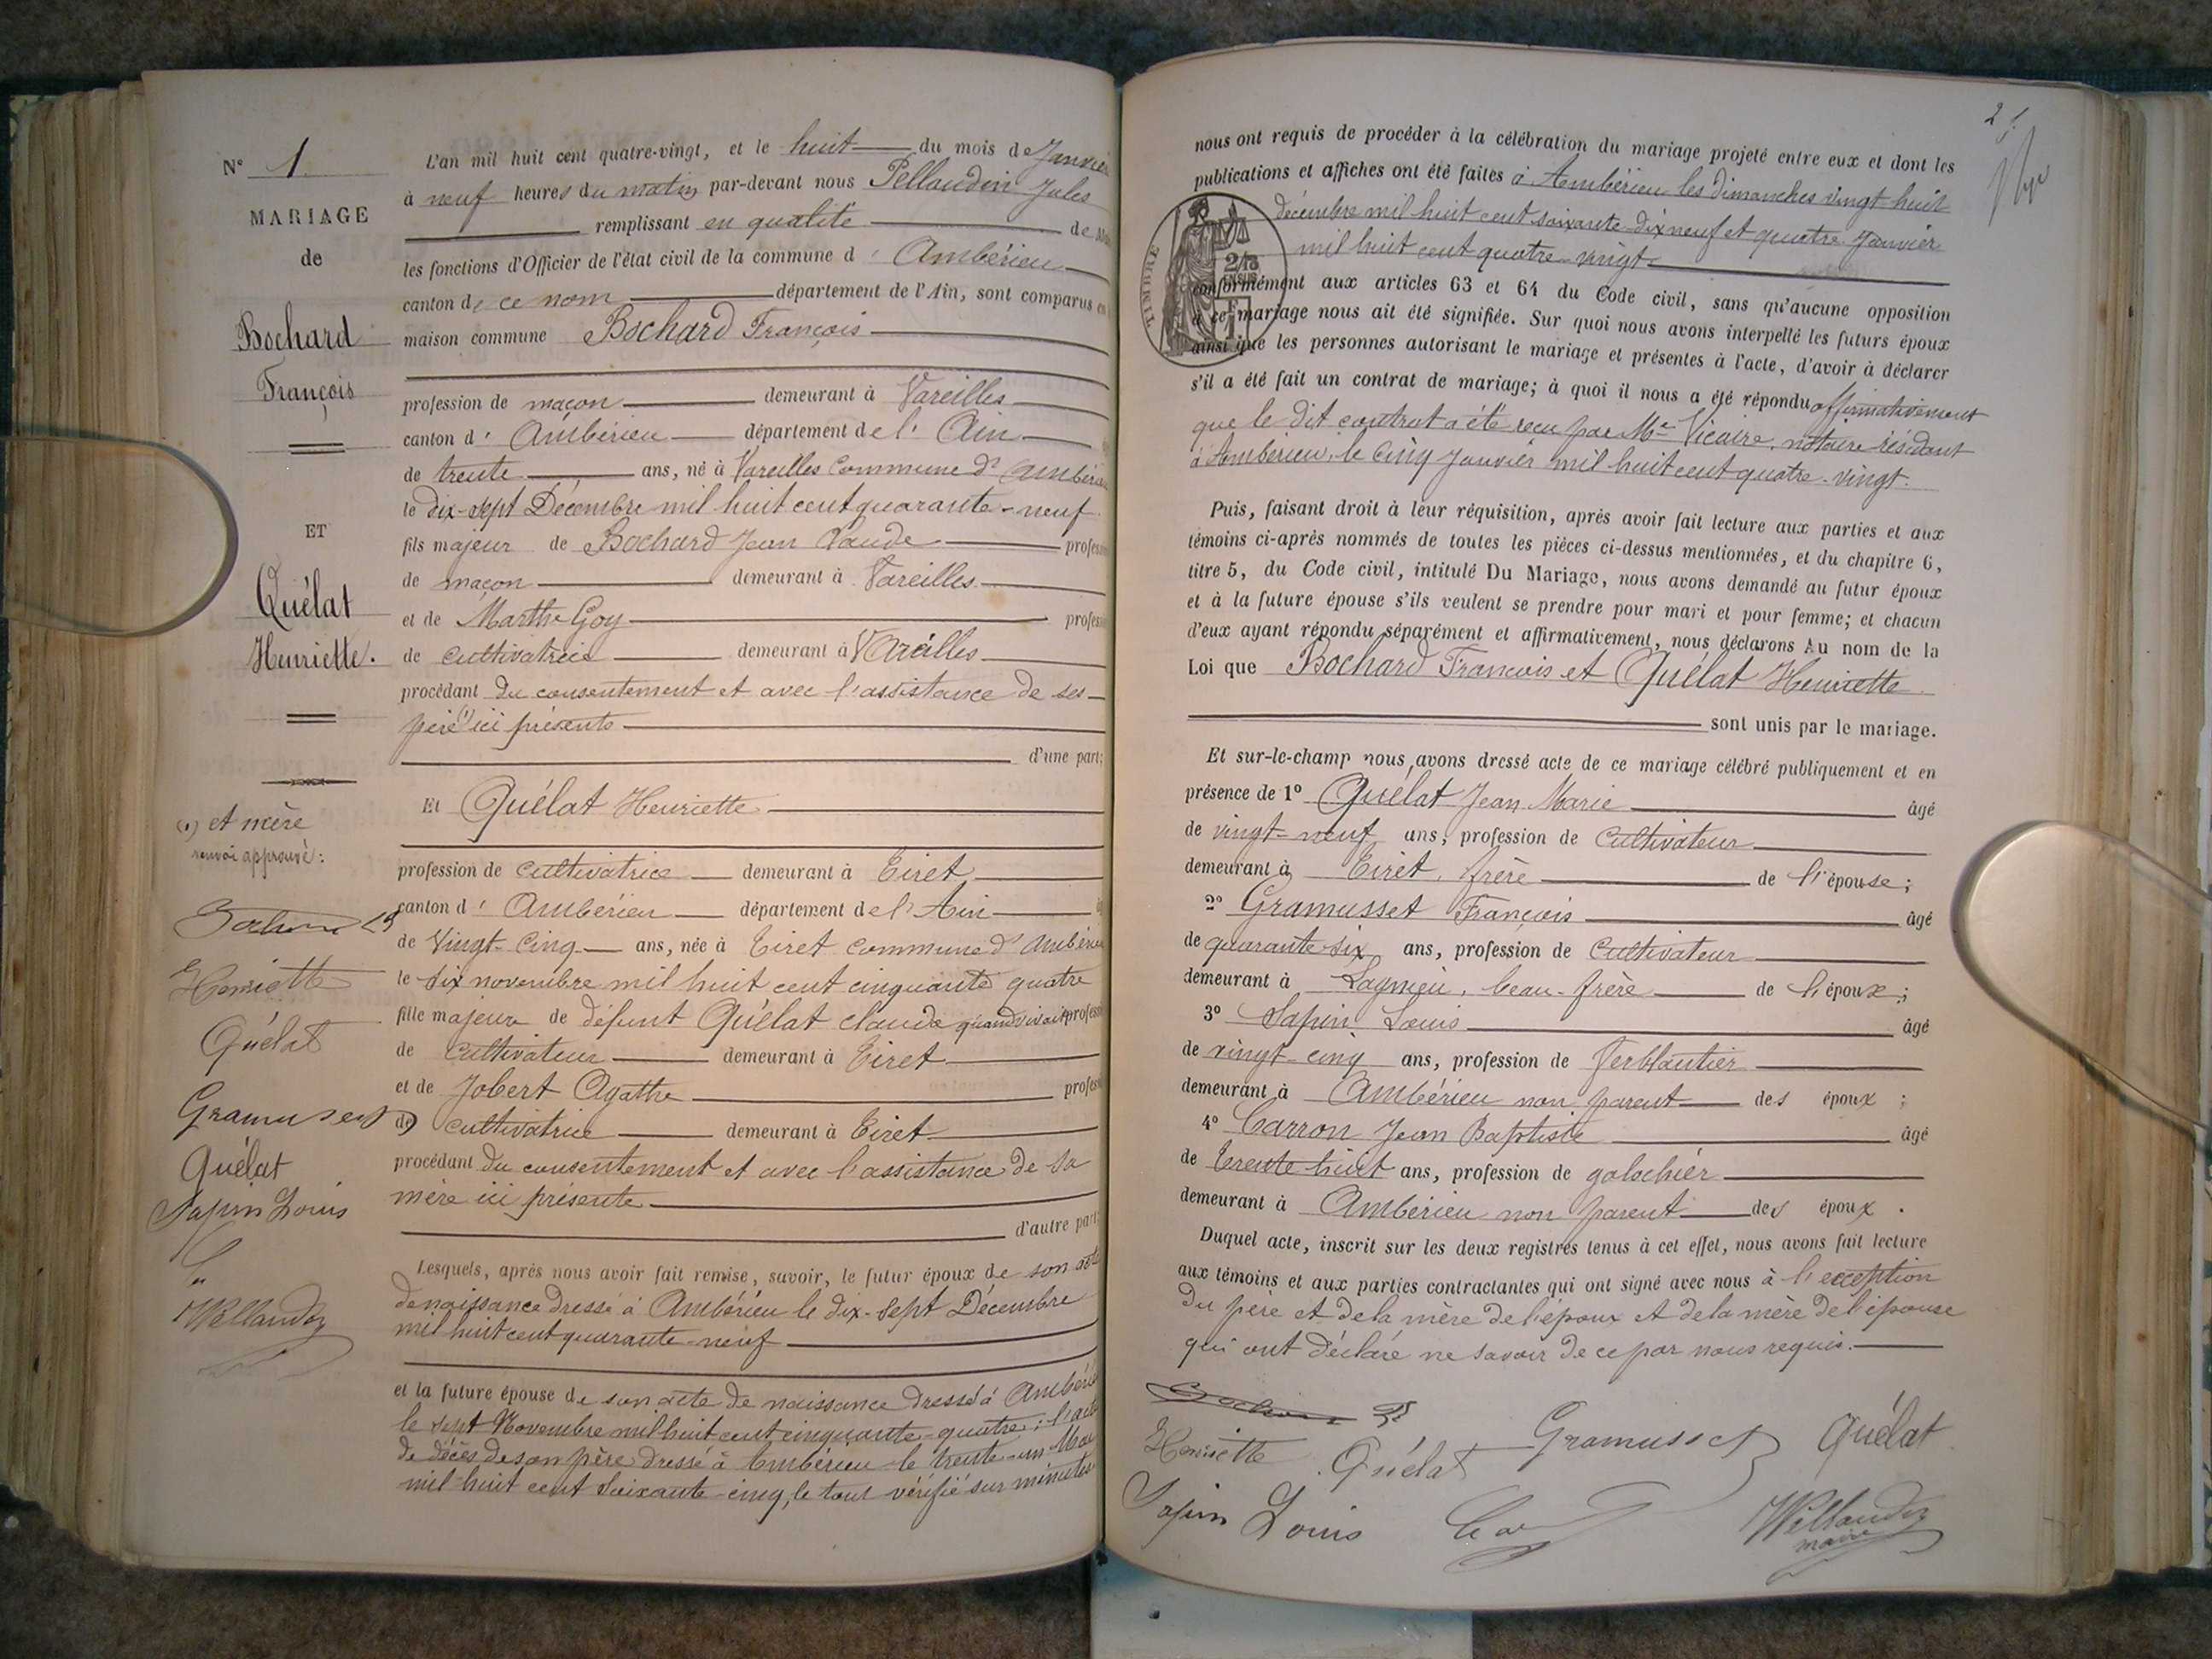 N° 1.
MARIAGE
de
Bochard
François
ET
Quélat
Henriette.
(1) et mère
renvoi approuvé :
Henriette
Quélat
Gramusset
Quélat
Sapin Louis
Pellaudin
L'an mil huit cent quatre-vingt, et le huit du mois de Janvier
à neuf heures du matin par-devant nous Pellaudin Jules
remplissant en qualité de
les fonctions d'Officier de l'état civil de la commune d' Ambérieu
canton de ce nom département de l'Ain, sont comparus en
maison commune Bochard François
profession de maçon demeurant à Vareilles
canton d' Ambérieu département de l' Ain
de trente ans, né à Vareilles Commune d' Ambérieu
le dix-sept Décembre mil huit cent quarante-neuf
fils majeur de Bochard Jean Claude profession
de maçon demeurant à Vareilles
et de Marthe Goy profession
de cultivatrice demeurant à Vareilles
procédant du consentement et avec l'assistance de ses
père (1) ici présents
d'une part;
Et Quélat Henriette
profession de cultivatrice demeurant à Tiret
canton d' Ambérieu département de l' Ain
de Vingt-Cinq ans, née à Tiret commune d' Ambérieu
le six novembre mil huit cent cinquante quatre
fille majeure de défunt Quélat claude quand vivait profession
de cultivateur demeurant à Tiret
et de Jobert Agathe profession
de cultivatrice demeurant à Tiret
procédant du consentement et avec l'assistance de sa
mère ici présente
d'autre part;
Lesquels, après nous avoir fait remise, savoir, le futur époux de son acte
de naissance dressé à Ambérieu le dix-sept Décembre
mil huit cent quarante-neuf
et la future épouse de son acte de naissance dressé à Ambérieu
le sept Novembre mil huit cent cinquante-quatre ; l'acte
de décès de son père dressé à Ambérieu le trente-un Mai
mil huit cent soixante-cinq, le tout vérifié sur minutes
2
nous ont requis de procéder à la célébration du mariage projeté entre eux et dont les
publications et affiches ont été faites à Ambérieu les dimanches vingt huit
décembre mil huit cent soixante-dix neuf et quatre Janvier
mil huit cent quatre-vingt
TIMBRE
conformément aux articles 63 et 64 du Code civil, sans qu'aucune opposition
à ce mariage nous ait été signifiée. Sur quoi nous avons interpellé les futurs époux
ainsi que les personnes autorisant le mariage et présentes à l'acte, d'avoir à déclarer
s'il a été fait un contrat de mariage; à quoi il nous a été répondu affirmativement
que le dit contrat a été reçu par Me Vicaire, notaire résidant
à Ambérieu, le cinq Janvier mil huit cent quatre-vingt.
Puis, faisant droit à leur réquisition, après avoir fait lecture aux parties et aux
témoins ci-après nommés de toutes les pièces ci-dessus mentionnées, et du chapitre 6,
titre 5, du Code civil, intitulé Du Mariage, nous avons demandé au futur époux
et à la future épouse s'ils veulent se prendre pour mari et pour femme; et chacun
d'eux ayant répondu séparément et affirmativement, nous déclarons Au nom de la
Loi que Bochard François et Quélat Henriette
sont unis par le mariage.
Et sur-le-champ nous avons dressé acte de ce mariage célébré publiquement et en
présence de 1° Quélat Jean Marie âgé
de vingt-neuf ans, profession de cultivateur
demeurant à Tiret, frère de l'épouse ;
2° Gramusset François âgé
de quarante-six ans, profession de cultivateur
demeurant à Lagnieu, beau-frère de l'époux ;
3° Sapin Louis âgé
de vingt-cinq ans, profession de ferblantier
demeurant à Ambérieu non parent des époux ;
4° Carron Jean Baptiste âgé
de trente huit ans, profession de galochier
demeurant à Ambérieu non parent des époux .
Duquel acte, inscrit sur les deux registres tenus à cet effet, nous avons fait lecture
aux témoins et aux parties contractantes qui ont signé avec nous à l'exception
du père et de la mère de l'époux et de la mère de l'épouse
qui ont déclaré ne savoir de ce par nous requis.
Henriette Quélat Gramusset Quélat
Sapin Louis Pellaudin
maire